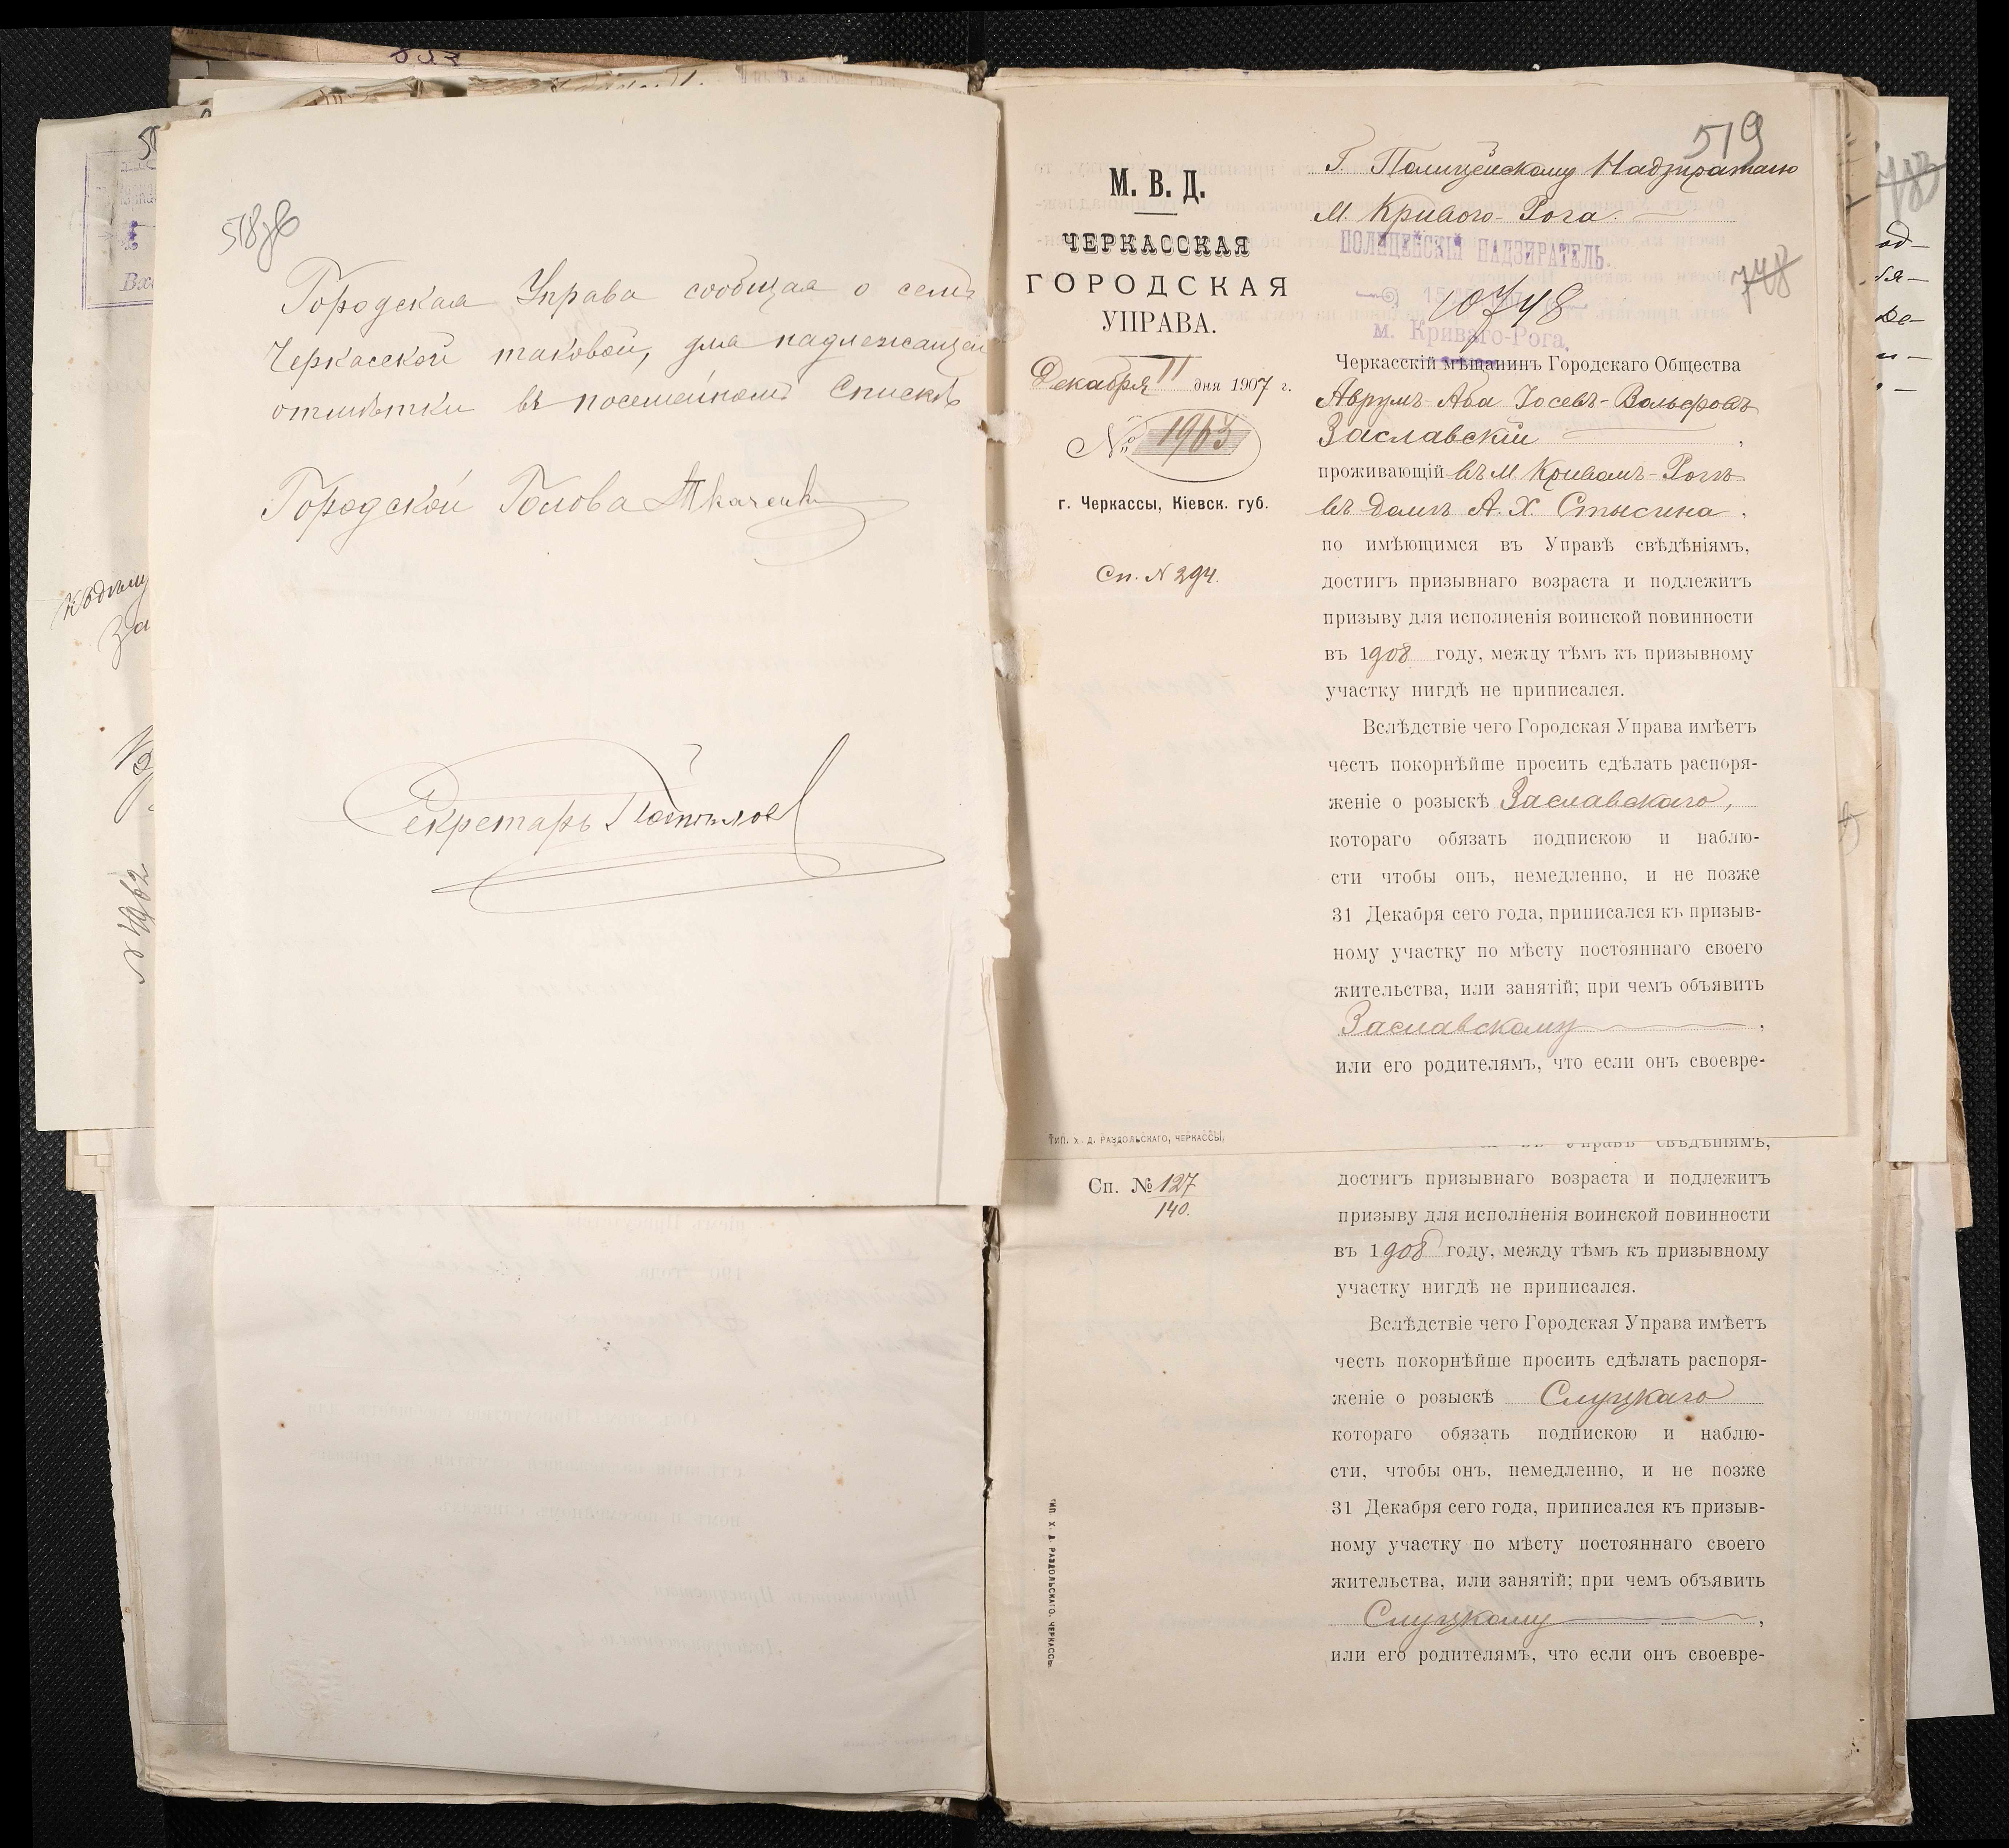 518 об
Городская Управа сообщая о семъ
Черкасской таковой, для надлежащей
отмѣтки въ посемейномъ Спискѣ
Городской Голова Ткаченко
Секретарь
№ 1962
519
Г. Полицейскому Надзирателю
М. Кривого-Рога.
ПОЛИЦЕЙСКІЙ НАДЗИРАТЕЛЬ.
10748
м. Криваго-Рога.
748
М. В. Д.
ЧЕРКАССКАЯ
ГОРОДСКАЯ
УПРАВА.
Декабря 11 дня 1907 г.
№ 1963
г. Черкассы, Кіевск. губ.
Сп. № 294.
Черкасскій мѣщанинъ Городскаго Общества
Аврумъ-Аба Іосевъ-Вольфовъ
Заславскій,
проживающій въ м. Кривомъ-Рогѣ
въ домѣ А. Х. Стысина,
по имѣющимся въ Управѣ свѣдѣніямъ,
достигъ призывнаго возраста и подлежитъ
призыву для исполненія воинской повинности
въ 1908 году, между тѣмъ къ призывному
участку нигдѣ не приписался.
Вслѣдствіе чего Городская Управа имѣетъ
честь покорнѣйше просить сдѣлать распоря-
женіе о розыскѣ Заславскаго,
котораго обязать подпискою и наблю-
сти чтобы онъ, немедленно, и не позже
31 Декабря сего года, приписался къ призыв-
ному участку по мѣсту постояннаго своего
жительства, или занятій; при чемъ объявить
Заславскому,
или его родителямъ, что если онъ своевре-
ТИП. Х. Д. РАЗДОЛЬСКАГО, ЧЕРКАССЫ.
Управѣ свѣдѣніямъ,
Сп. № 127
140.
достигъ призывнаго возраста и подлежитъ
призыву для исполненія воинской повинности
въ 1908 году, между тѣмъ къ призывному
участку нигдѣ не приписался.
Вслѣдствіе чего Городская Управа имѣетъ
честь покорнѣйше просить сдѣлать распоря-
женіе о розыскѣ Слуцкаго
котораго обязать подпискою и наблю-
сти, чтобы онъ, немедленно, и не позже
31 Декабря сего года, приписался къ призыв-
ному участку по мѣсту постояннаго своего
жительства, или занятій; при чемъ объявить
Слуцкому,
или его родителямъ, что если онъ своевре-
ТИП. Х. Д. РАЗДОЛЬСКАГО, ЧЕРКАССЫ.